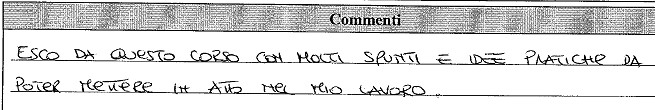 Commenti
ESCO DA QUESTO CORSO CON MOLTI SPUNTI E IDEE PRATICHE DA
POTER METTERE IN ATTO NEL MIO LAVORO.